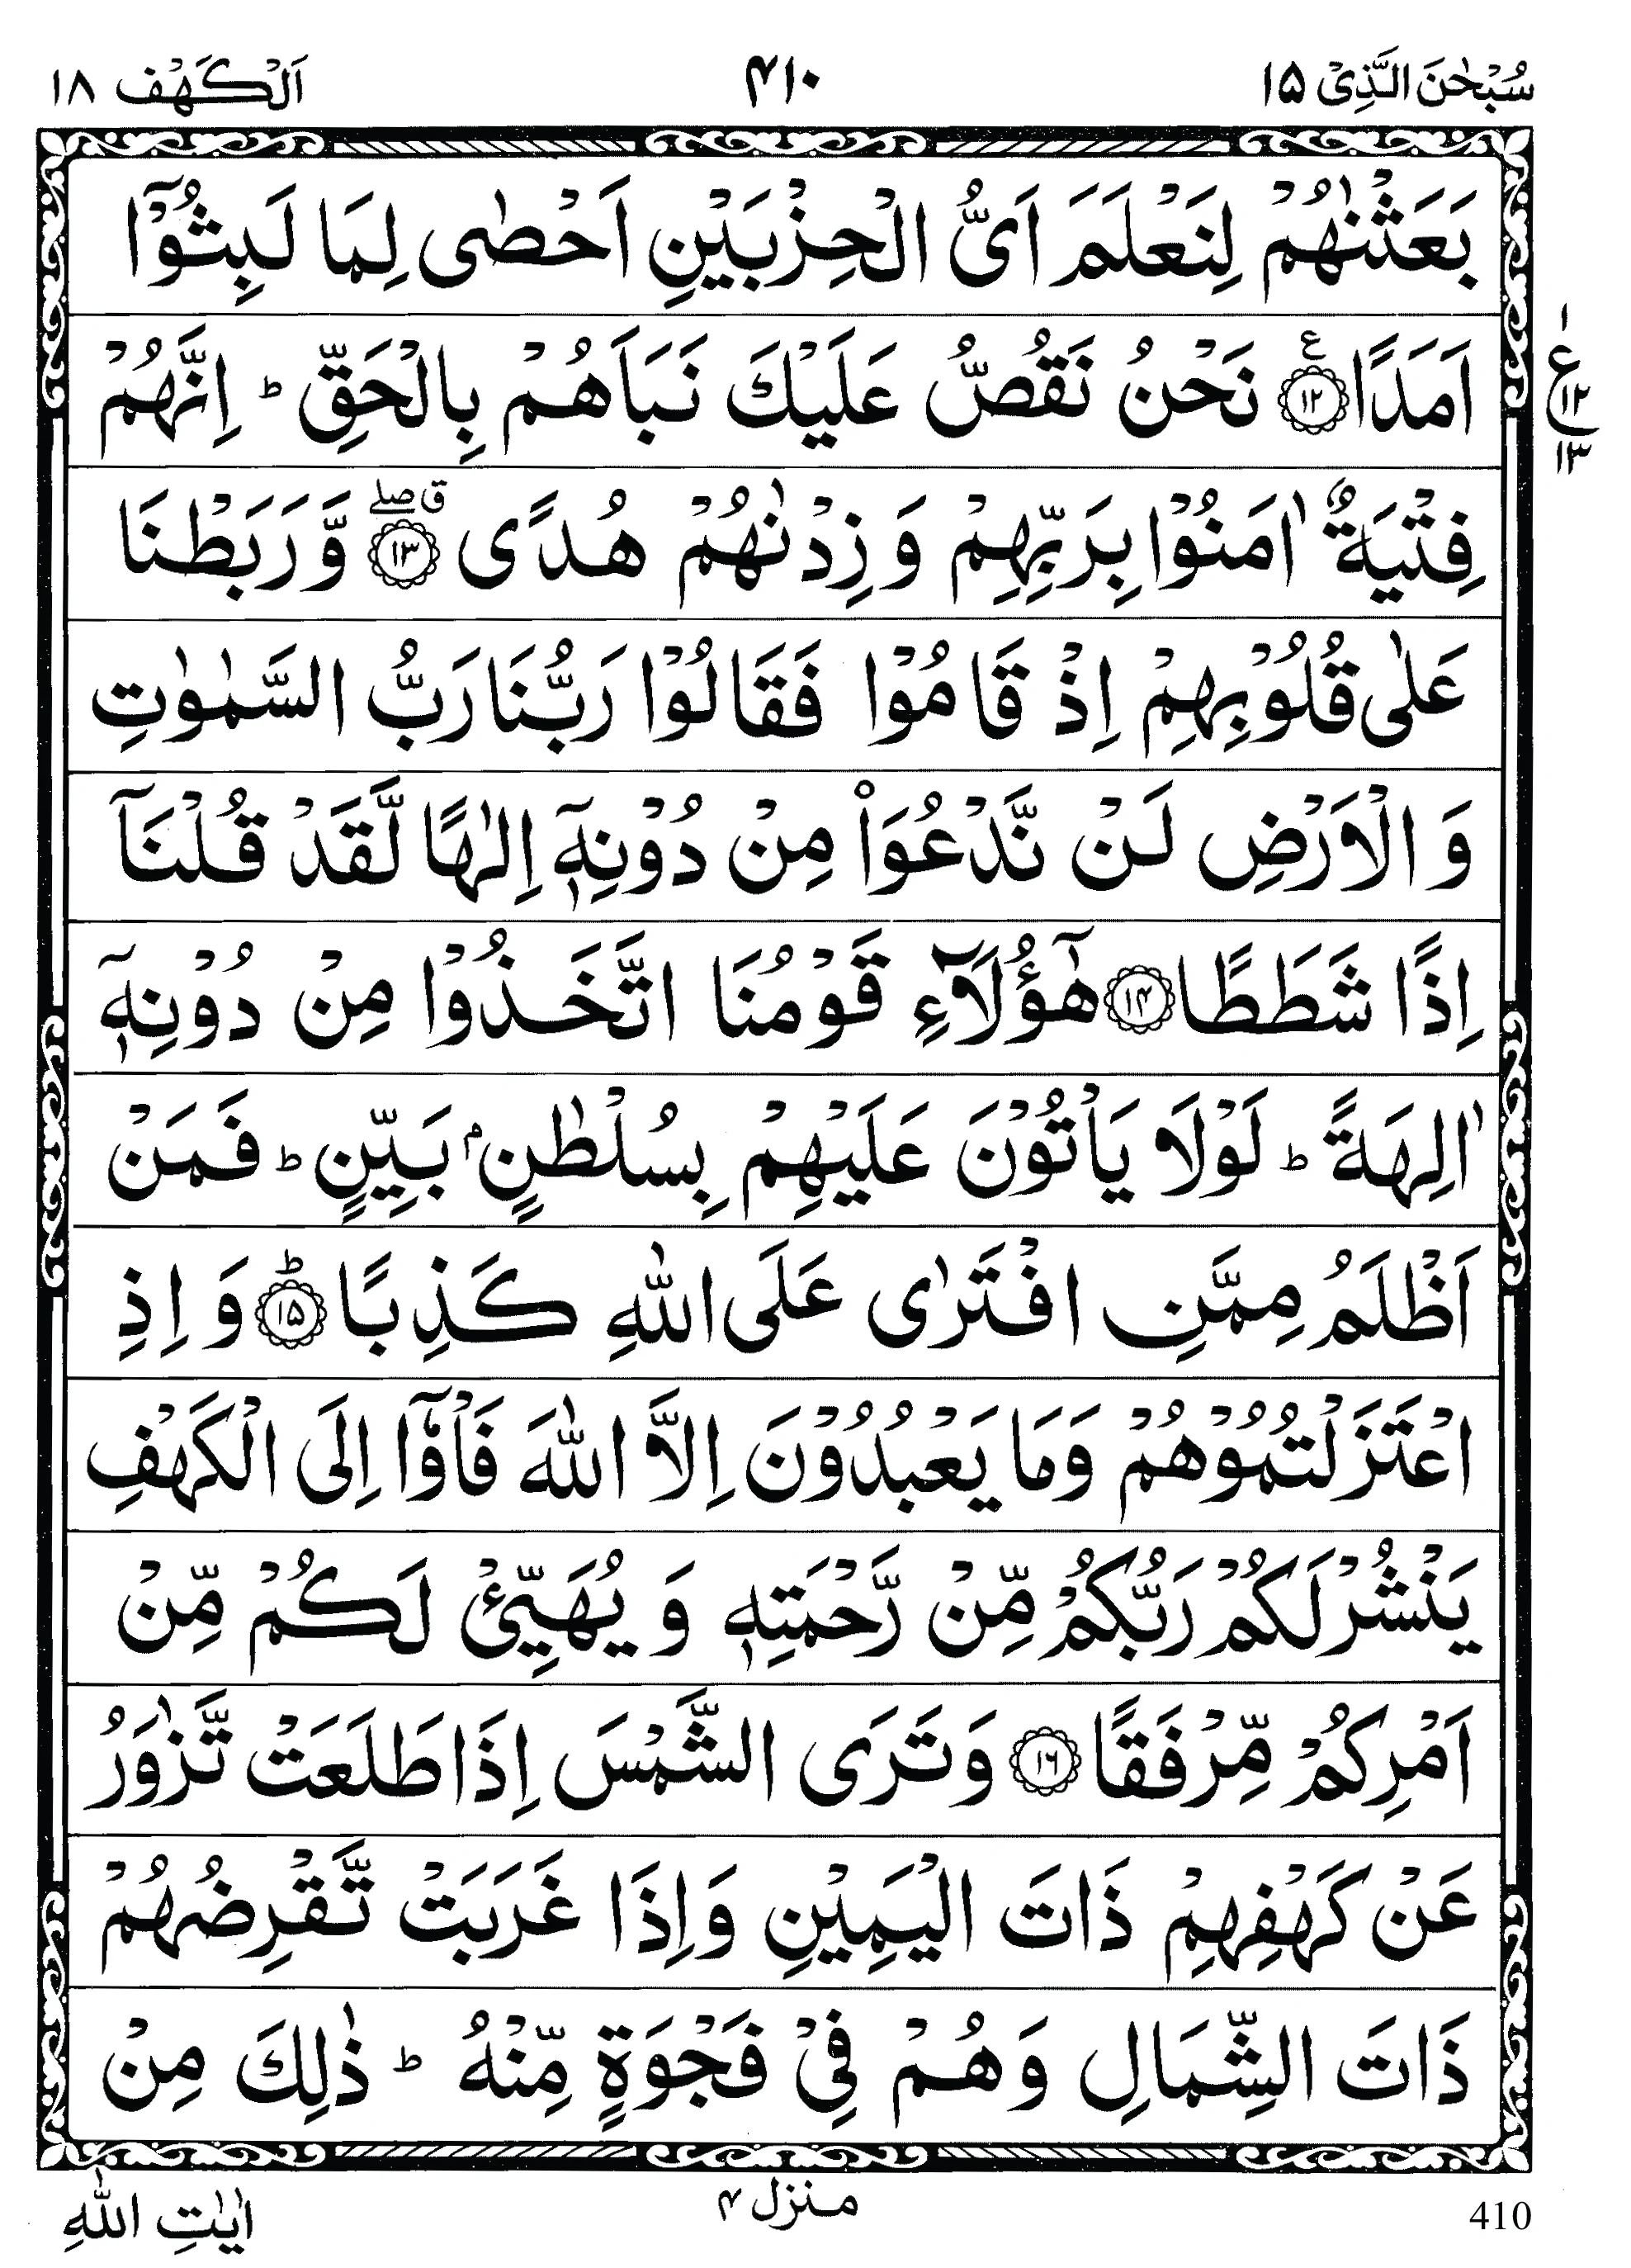 سُبْحٰنَ الَّذِیْۤ ۱۵
۴۱۰
اَلْكَهْف ۱۸
بَعَثْنٰهُمْ لِنَعْلَمَ اَیُّ الْحِزْبَیْنِ اَحْصٰی لِمَا لَبِثُوْۤا
اَمَدًا ؑ۱۲ نَحْنُ نَقُصُّ عَلَیْكَ نَبَاَهُمْ بِالْحَقِّ ؕ اِنَّهُمْ
فِتْیَةٌ اٰمَنُوْا بِرَبِّهِمْ وَ زِدْنٰهُمْ هُدًی ۱۳ ق صلے وَّ رَبَطْنَا
عَلٰی قُلُوْبِهِمْ اِذْ قَامُوْا فَقَالُوْا رَبُّنَا رَبُّ السَّمٰوٰتِ
وَ الْاَرْضِ لَنْ نَّدْعُوَا۠ مِنْ دُوْنِهٖۤ اِلٰهًا لَّقَدْ قُلْنَاۤ
اِذًا شَطَطًا ۱۴ هٰۤؤُلَآءِ قَوْمُنَا اتَّخَذُوْا مِنْ دُوْنِهٖۤ
اٰلِهَةً ؕ لَوْلَا یَاْتُوْنَ عَلَیْهِمْ بِسُلْطٰنٍۭ بَیِّنٍ ؕ فَمَنْ
اَظْلَمُ مِمَّنِ افْتَرٰی عَلَی اللّٰهِ كَذِبًا ؕ۱۵ وَ اِذِ
اعْتَزَلْتُمُوْهُمْ وَمَا یَعْبُدُوْنَ اِلَّا اللّٰهَ فَاْوٗۤا اِلَی الْكَهْفِ
یَنْشُرْ لَكُمْ رَبُّكُمْ مِّنْ رَّحْمَتِهٖ وَ یُهَیِّئْ لَكُمْ مِّنْ
اَمْرِكُمْ مِّرْفَقًا ۱۶ وَتَرَی الشَّمْسَ اِذَا طَلَعَتْ تَّزٰوَرُ
عَنْ كَهْفِهِمْ ذَاتَ الْیَمِیْنِ وَاِذَا غَرَبَتْ تَّقْرِضُهُمْ
ذَاتَ الشِّمَالِ وَهُمْ فِیْ فَجْوَةٍ مِّنْهُ ؕ ذٰلِكَ مِنْ
۱
ع
۱۲
۱۳
410
منزل ۴
اٰیٰتِ اللّٰهِ